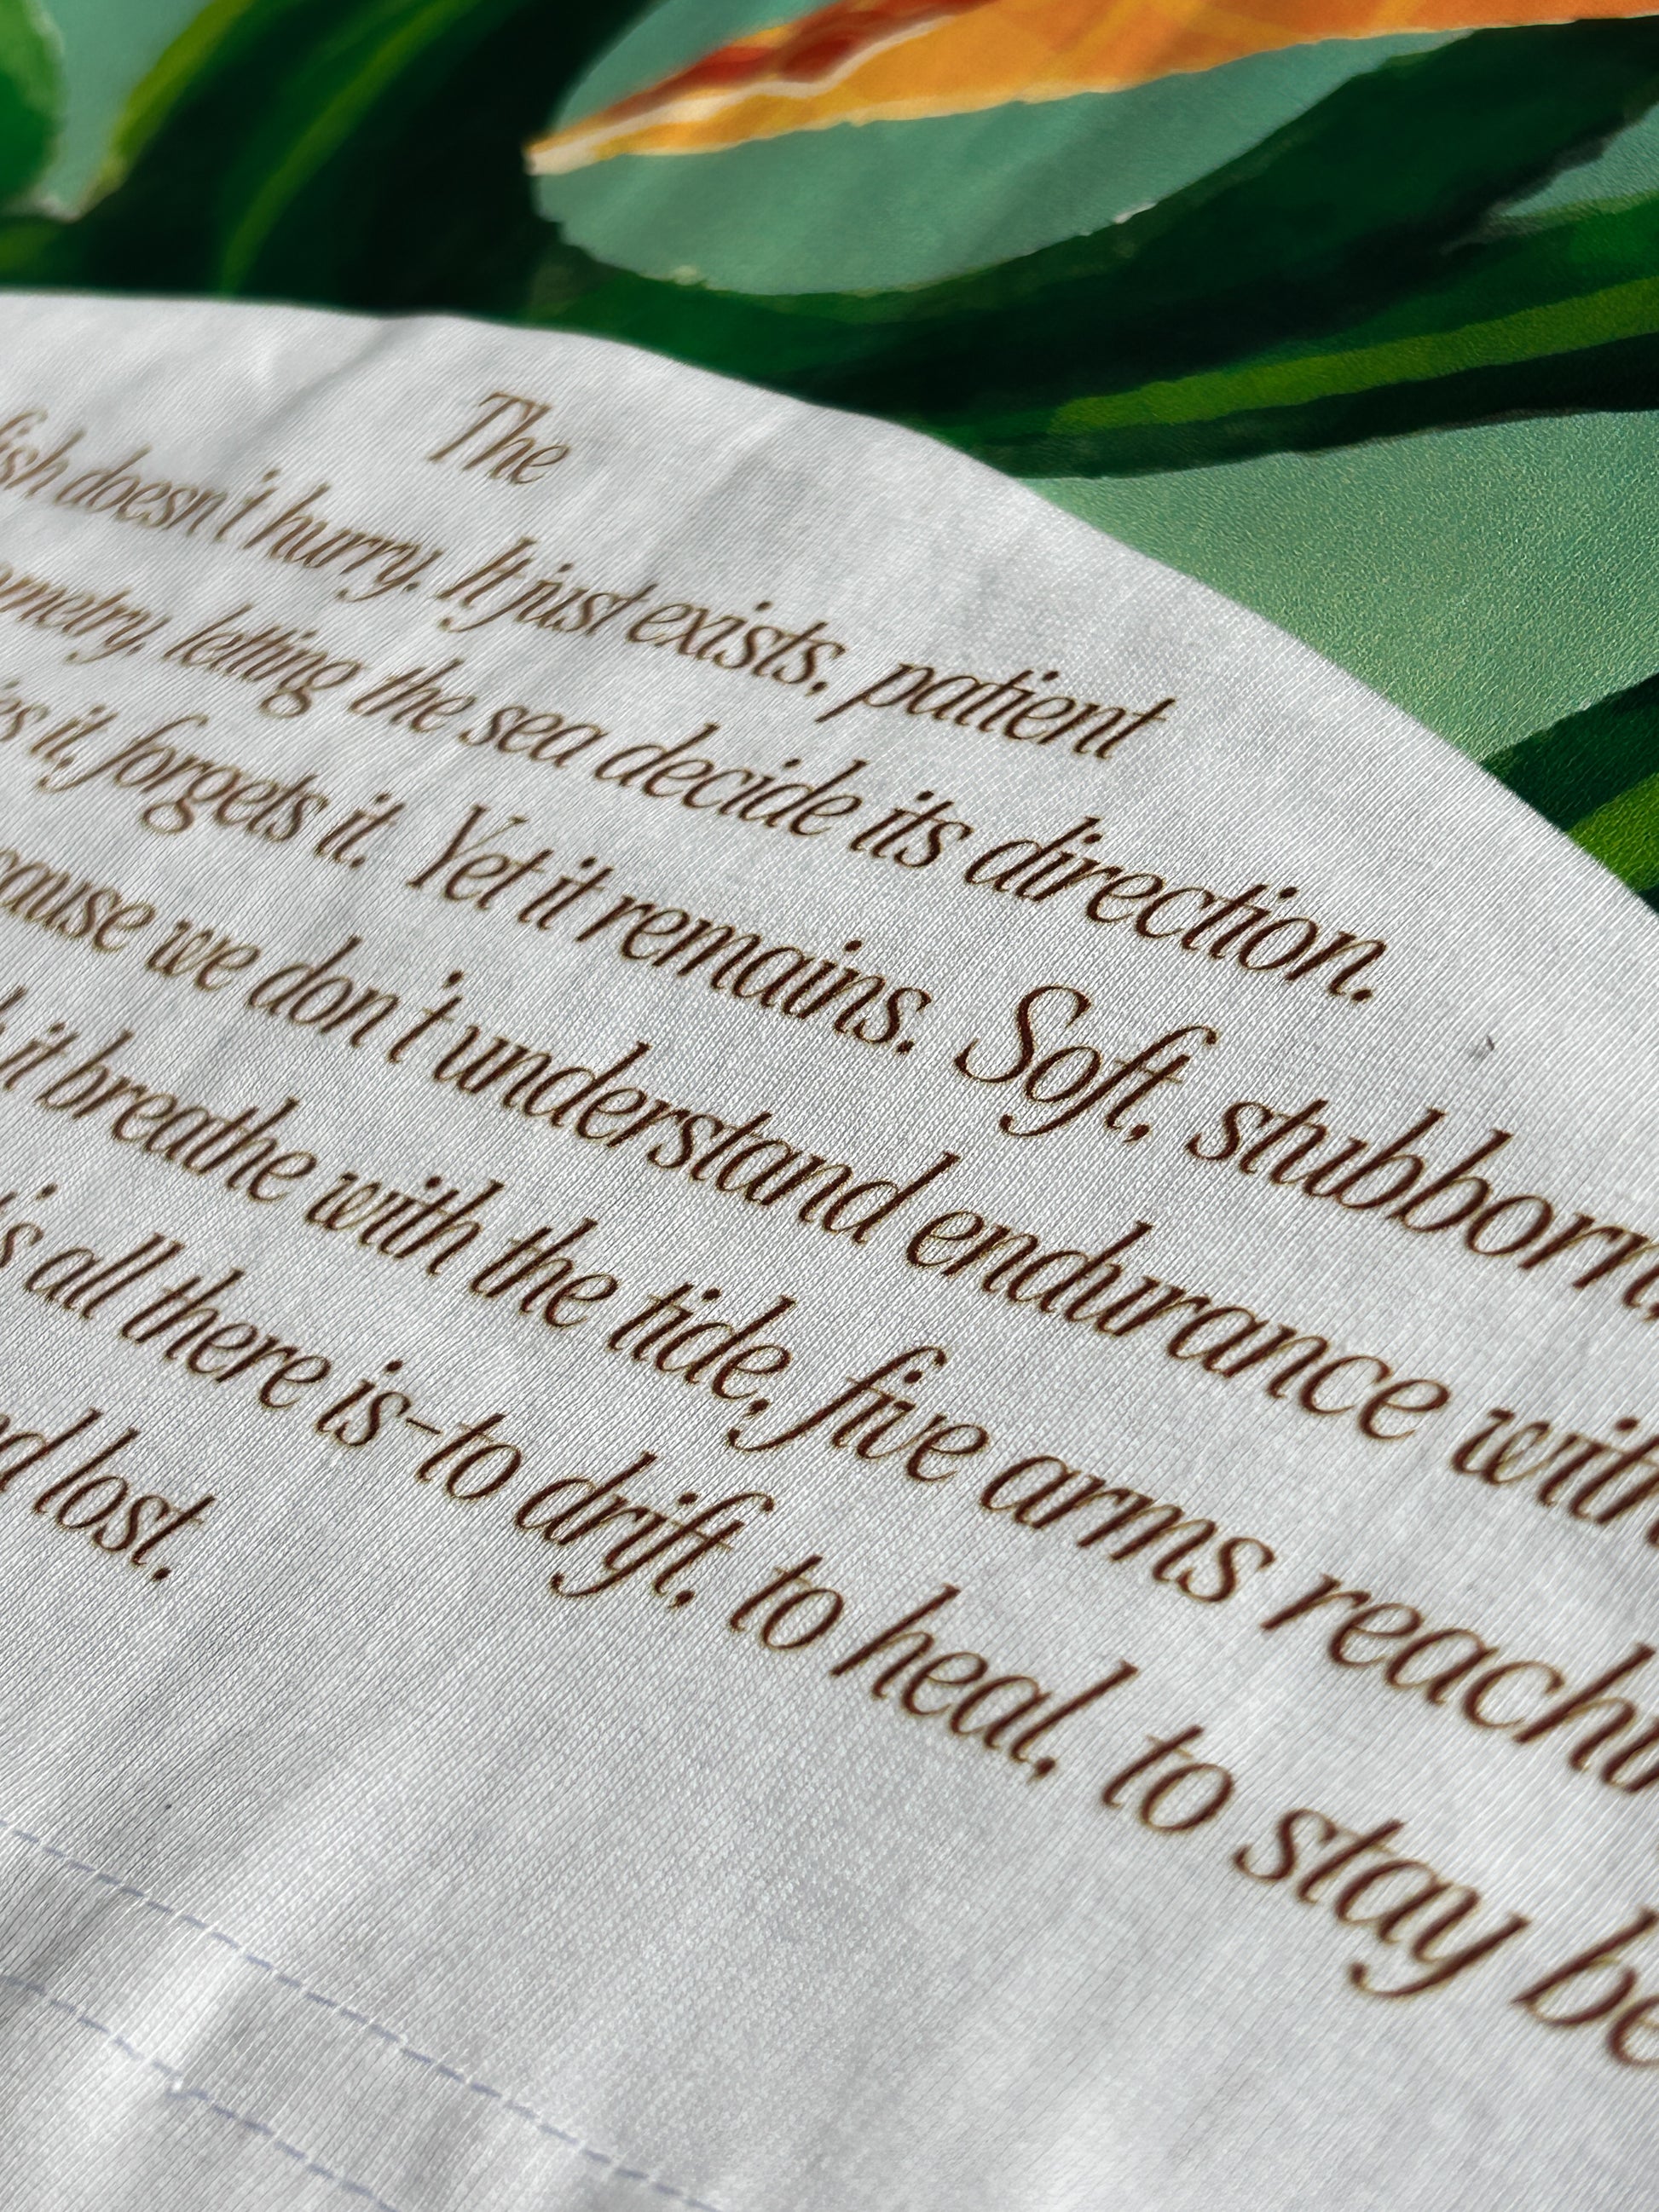 The
fish doesn't hurry. It just exists, patient
ometry, letting the sea decide its direction.
es it, forgets it. Yet it remains. Soft, stubborn,
cause we don't understand endurance with
it breathe with the tide, five arms reachi
t's all there is-to drift, to heal, to stay be
d lost.